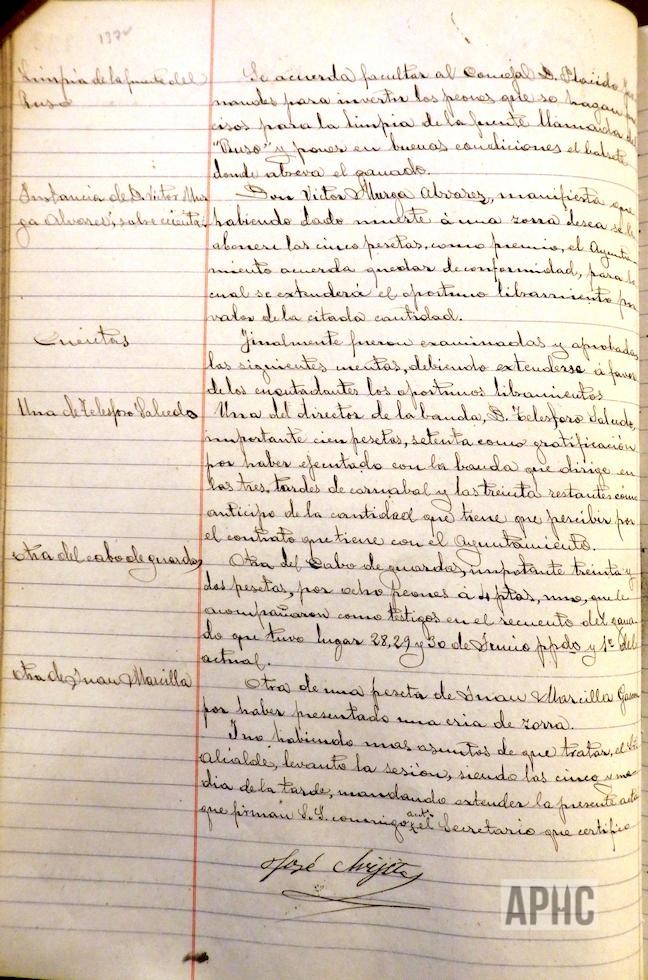 Limpia de la fuente del
Ruso
Se acuerda facultar al Concejal D. Placido
nandes para invertir los peones que se hagan
cisos para la limpia de la fuente llamada del
"Ruso" y poner en buenas condiciones el
donde abreva el ganado.
Instancia de D. Victor Mur-
ga Alvarez, sobre
Don Victor Murga Alvarez, manifiesta que
habiendo dado muerte á una zorra desea se le
abonen las cinco pesetas, como premio, el Ayunta-
miento acuerda quedar de conformidad, para lo
cual se extenderá el oportuno libramiento por
valor de la citada cantidad.
Cuentas
Finalmente fueron examinadas y aprobadas
las siguientes cuentas, debiendo extenderse á favor
de los cuentadantes los oportunos libramientos
Una de Telesforo Salcedo
Una del director de la banda, D. Telesforo Salcedo,
importante cien pesetas, setenta como gratificación
por haber ejecutado con la banda que dirige en
las tres tardes de carnabal y las treinta restantes como
anticipo de la cantidad que tiene que percibir por
el contrato que tiene con el Ayuntamiento.
otra del cabo de guardas
Otra del Cabo de guardas, importante treinta y
dos pesetas, por ocho peones á 4 ptas, uno, que le
acompañaron como testigos en el recuento del gana-
do que tuvo lugar 28, 29 y 30 de Junio ppdo y 1º del
actual.
otra de Juan Marcilla
Otra de una peseta de Juan Marcilla
por haber presentado una cria de zorra.
I no habiendo mas asuntos de que tratar, el Sr.
Alcalde, levanto la sesión, siendo las cinco y me-
dia de la tarde, mandando extender la presente acta
que firman S.S. conmigo el Secretario que certifico
José
APHC